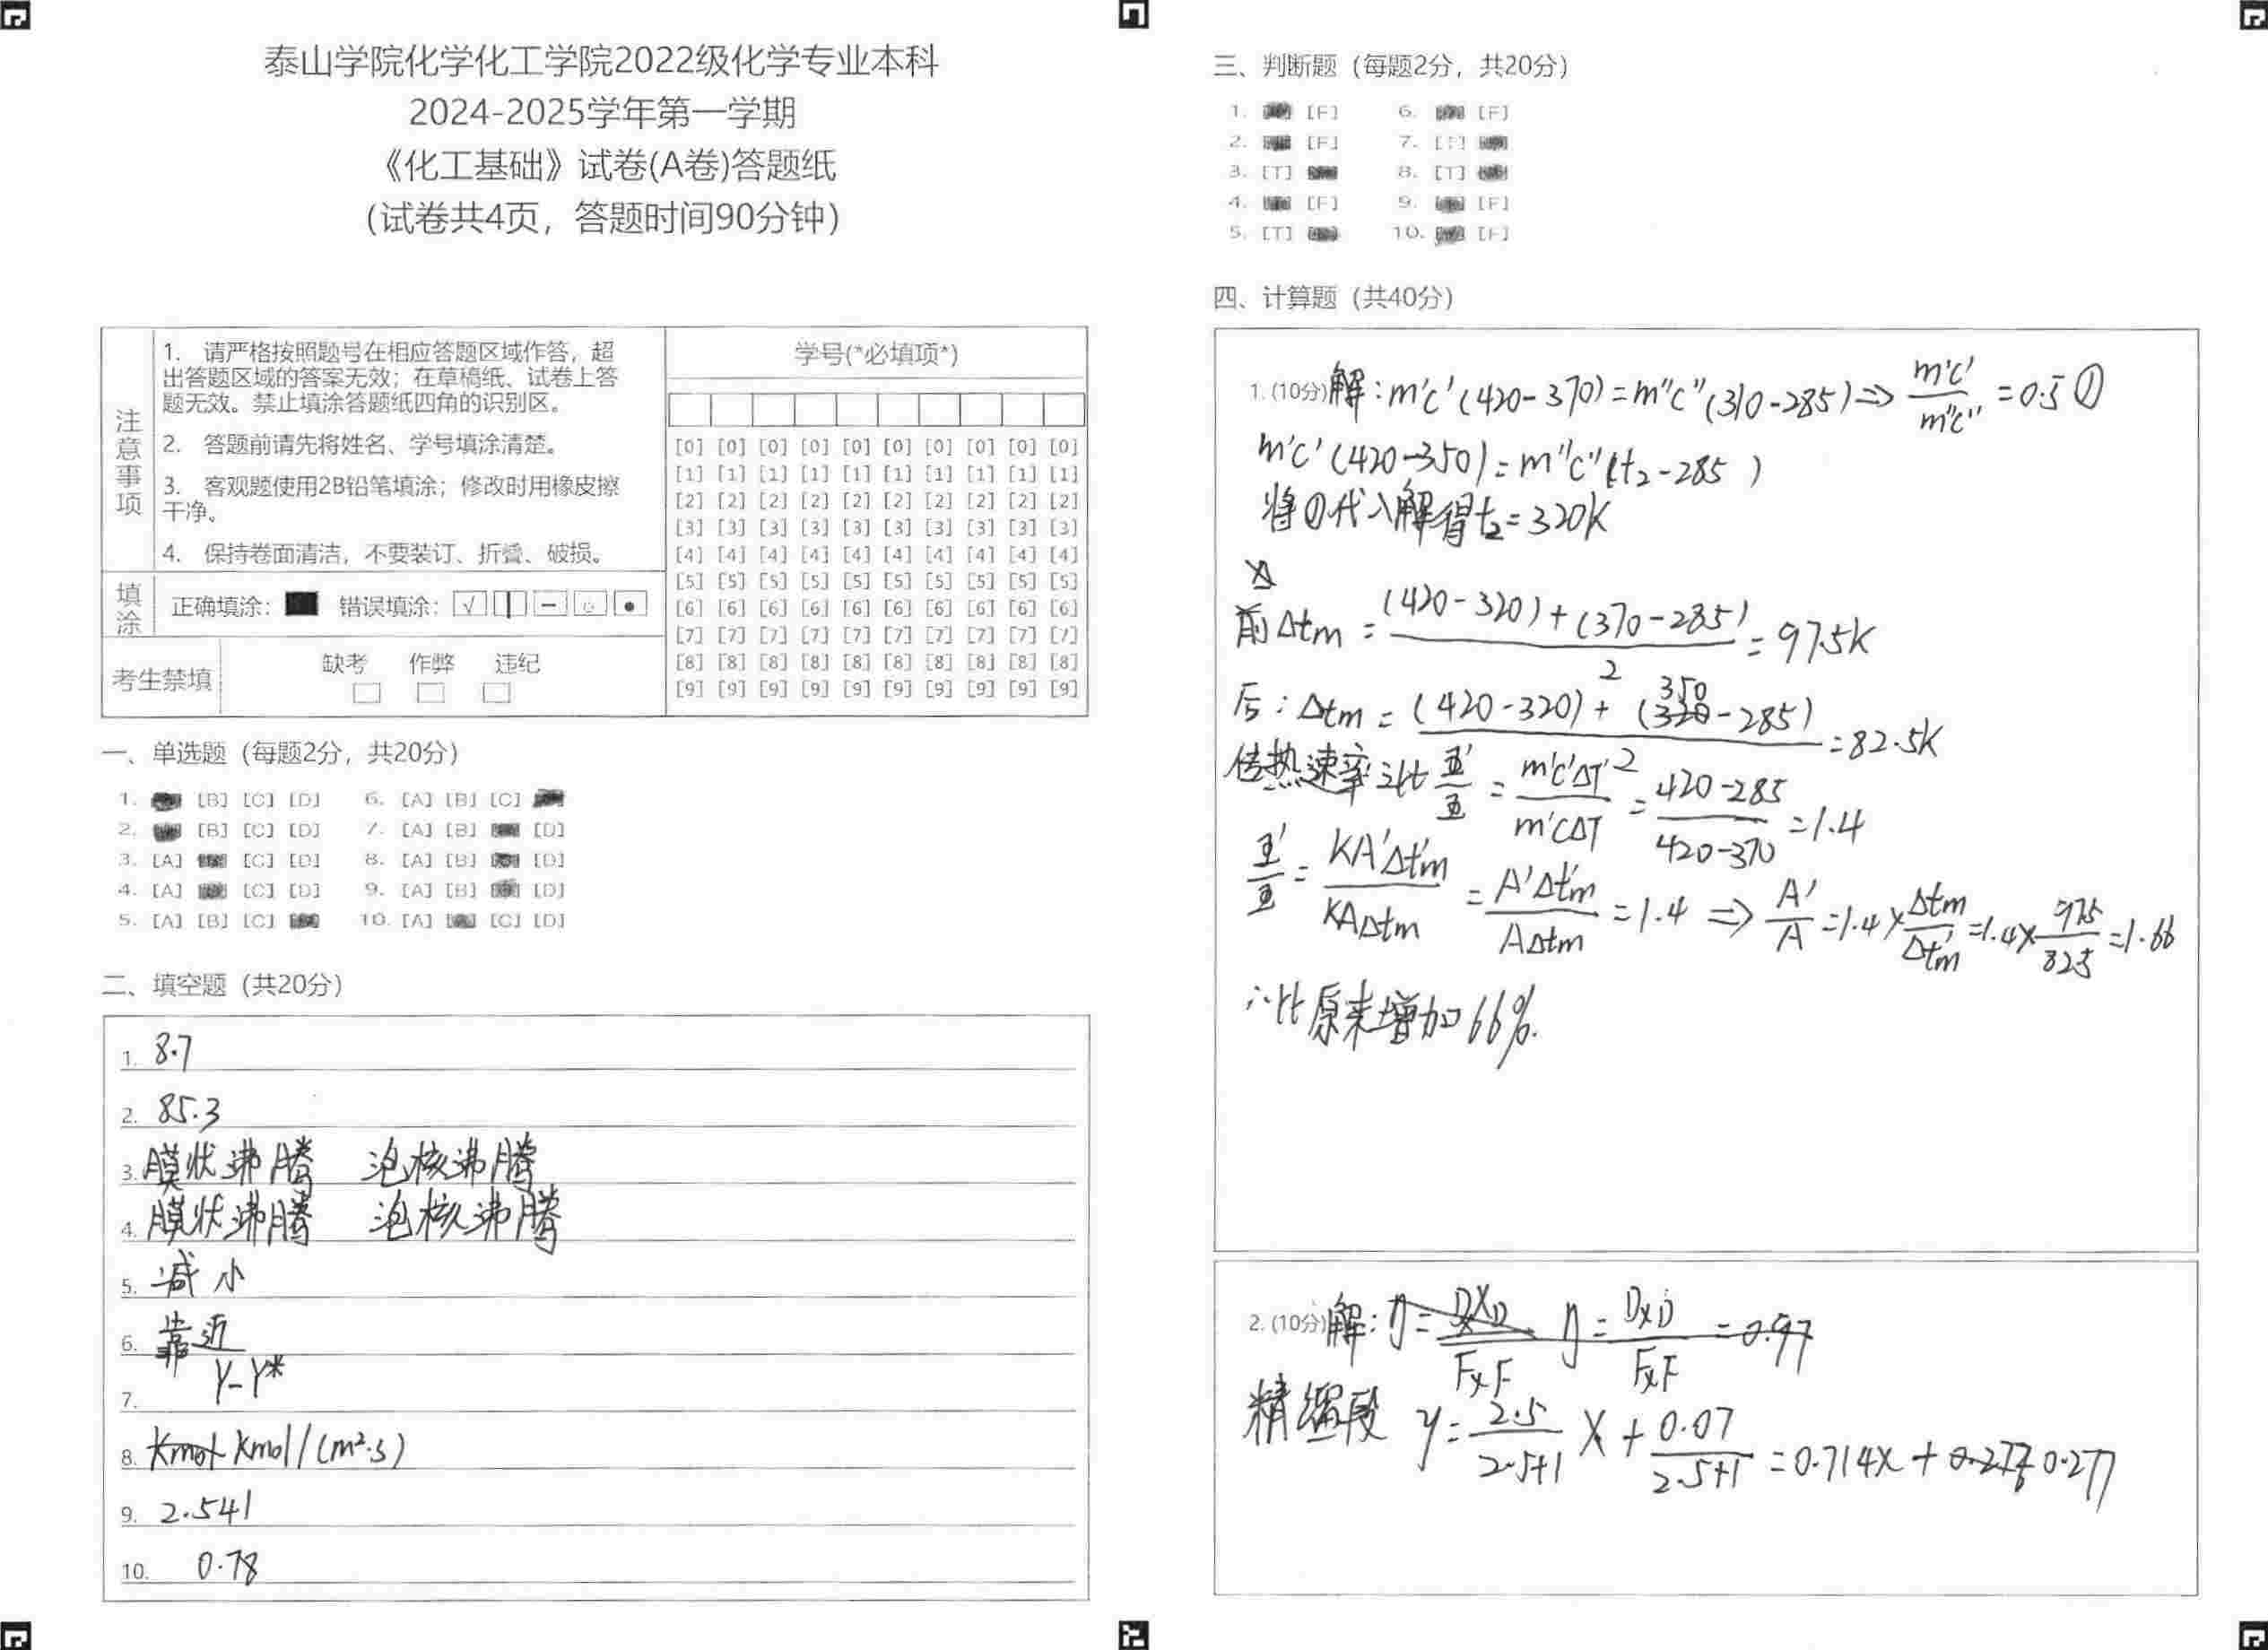 泰山学院化学化工学院2022级化学专业本科
2024-2025学年第一学期
《化工基础》试卷(A卷)答题纸
(试卷共4页，答题时间90分钟)
注意事项
1. 请严格按照题号在相应答题区域作答，超
出答题区域的答案无效；在草稿纸、试卷上答
题无效。禁止填涂答题纸四角的识别区。
2. 答题前请先将姓名、学号填涂清楚。
3. 客观题使用2B铅笔填涂；修改时用橡皮擦
干净。
4. 保持卷面清洁，不要装订、折叠、破损。
填涂
正确填涂： 错误填涂：
考生禁填
缺考 作弊 违纪
学号(*必填项*)
[0] [0] [0] [0] [0] [0] [0] [0] [0] [0]
[1] [1] [1] [1] [1] [1] [1] [1] [1] [1]
[2] [2] [2] [2] [2] [2] [2] [2] [2] [2]
[3] [3] [3] [3] [3] [3] [3] [3] [3] [3]
[4] [4] [4] [4] [4] [4] [4] [4] [4] [4]
[5] [5] [5] [5] [5] [5] [5] [5] [5] [5]
[6] [6] [6] [6] [6] [6] [6] [6] [6] [6]
[7] [7] [7] [7] [7] [7] [7] [7] [7] [7]
[8] [8] [8] [8] [8] [8] [8] [8] [8] [8]
[9] [9] [9] [9] [9] [9] [9] [9] [9] [9]
一、单选题（每题2分，共20分）
1. [B] [C] [D] 6. [A] [B] [C]
2. [B] [C] [D] 7. [A] [B] [D]
3. [A] [C] [D] 8. [A] [B] [D]
4. [A] [C] [D] 9. [A] [B] [D]
5. [A] [B] [C] 10. [A] [C] [D]
二、填空题（共20分）
1. 8.7
2. 85.3
3. 膜状沸腾 泡核沸腾
4. 膜状沸腾 泡核沸腾
5. 减小
6. 靠近
7. Y-Y*
8. Kmol/(m²·s)
9. 2.541
10. 0.78
三、判断题（每题2分，共20分）
1. [F] 6. [F]
2. [F] 7. [T]
3. [T] 8. [T]
4. [F] 9. [F]
5. [T] 10. [F]
四、计算题（共40分）
1. (10分) 解：m'c'(420-370)=m"c"(310-285)⇒ m'c'/m"c" =0.5 ①
m'c'(420-350)=m"c"(t₂-285)
将①代入解得t₂=320K
前Δtm = (420-320)+(370-285)/2 = 97.5K
后：Δtm = (420-320)+(350-285)/2 =82.5K
传热速率之比 Φ'/Φ = m'c'ΔT'/m'cΔT = 420-285/420-370 =1.4
Φ'/Φ = KA'Δt'm/KAΔtm = A'Δt'm/AΔtm =1.4 ⇒ A'/A =1.4×Δtm/Δt'm =1.4×97.5/82.5 =1.66
∴比原来增加66%.
2. (10分) 解：η= DxD/FxF =0.97
精馏段 y= 2.5/2.5+1 x + 0.07/2.5+1 =0.714x + 0.277